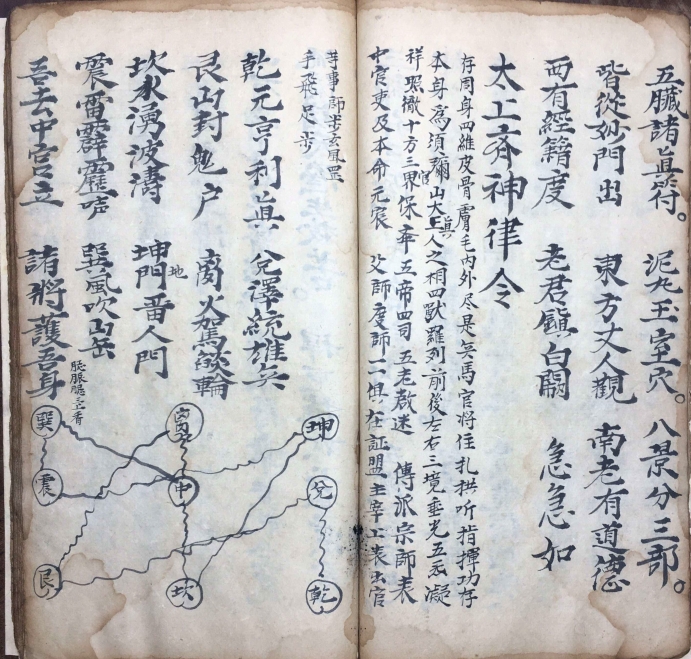 五臟諸真符。 泥丸玉室穴。 八景分三部。
皆從妙門出 東方丈人觀 南老有道德
西有經籍度 老君鎮白闕 急急如
太上齐神律令
存周身四維皮骨膚毛內外尽是兵馬官將住扎拱听指揮功存
本身為須彌山大上真人之相四獸羅列前後左右三境垂光五云凝
祥照徹十方三界保奉五帝四司五老啟送 傳派宗師表
中官吏及本命元宸 父師度師一一俱在証盟主宰上表出官
事師步玄風罡
手飛足步
乾元亨利真 兌澤統雄兵
艮山封鬼户 离火駕燄輪
坎水湧波濤 坤地門畨人門
震雷霹靂声 巽風吹山岳
吾去中宮立 諸將護吾身
坤 离 巽
兌 中 震
乾 坎 艮